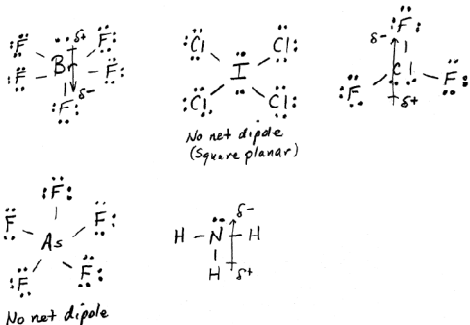 :F̈ F̈: δ+ F̈:
Br
:F̈ F̈:
:F̈: δ-
:C̈l C̈l:
I
:C̈l C̈l:
No net dipole
(Square planar)
δ- :F̈:
Cl
:F̈ F̈:
δ+
:F̈:
F̈ F̈:
As
:F̈ F̈:
No net dipole
δ-
H - N̈ - H
H δ+